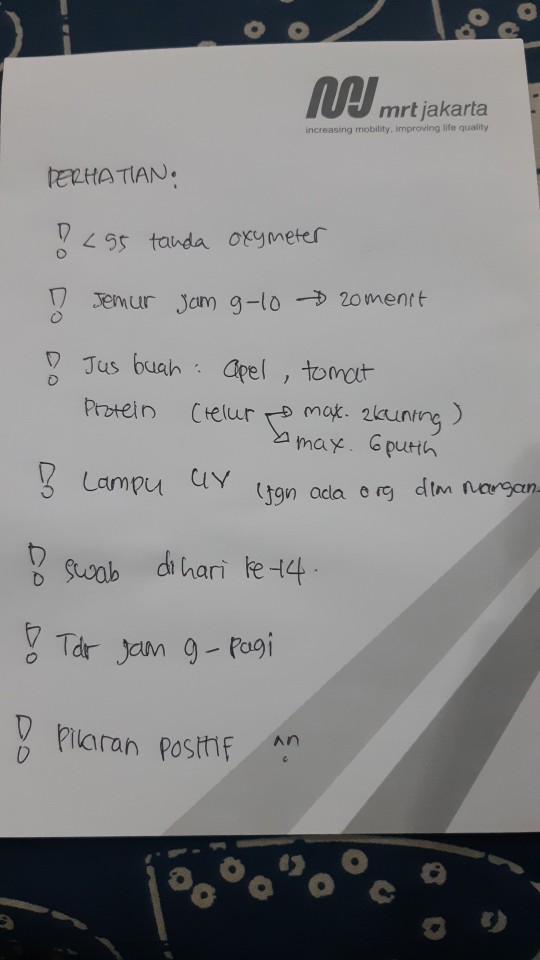 mrt jakarta
increasing mobility, improving life quality
PERHATIAN:
! < 95 tanda oxymeter
! Jemur jam 9-10 → 20 menit
! Jus buah : apel , tomat
Protein (telur → max. 2 kuning )
↘ max. 6 putih
! Lampu UV (jgn ada org dlm ruangan.
! Swab dihari ke-14.
! Tdr jam 9 - pagi
! Pikiran positif ^^